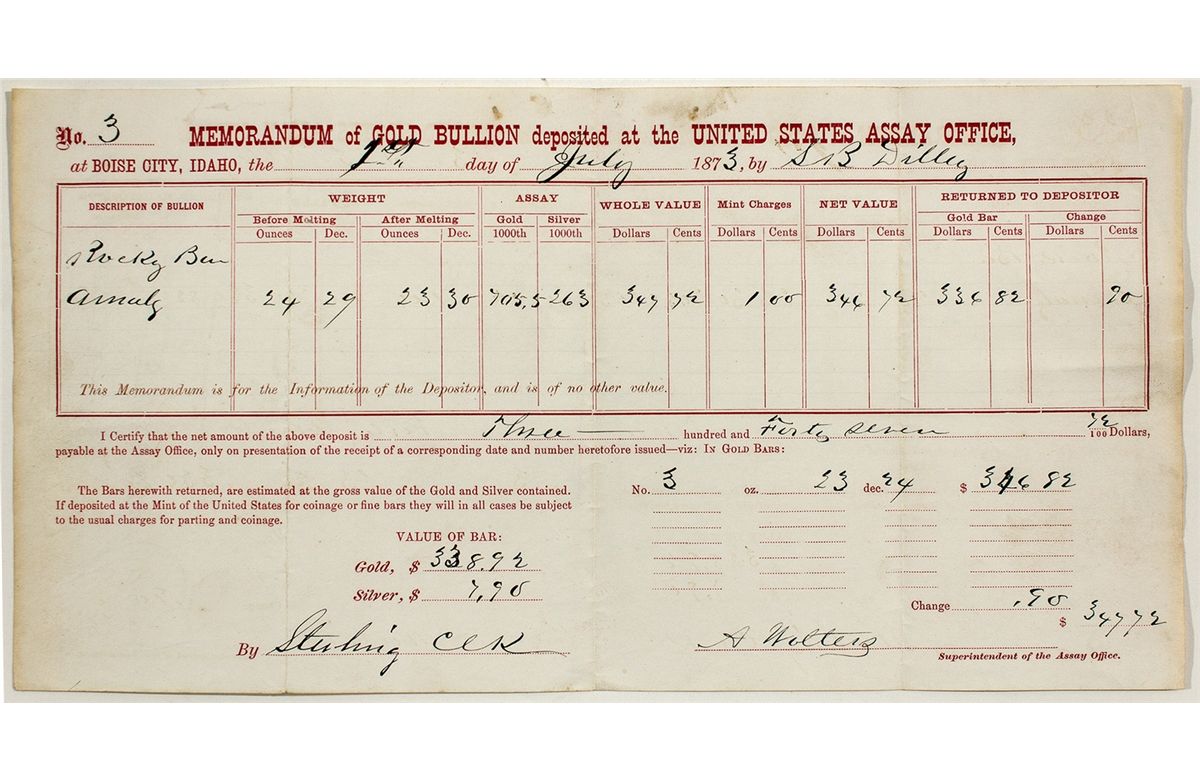 No. 3 MEMORANDUM of GOLD BULLION deposited at the UNITED STATES ASSAY OFFICE,
at BOISE CITY, IDAHO, the 1st day of July 1873, by S B Dilley
DESCRIPTION OF BULLION WEIGHT ASSAY WHOLE VALUE Mint Charges NET VALUE RETURNED TO DEPOSITOR
Before Melting After Melting Gold Silver Gold Bar Change
Ounces Dec. Ounces Dec. 1000th 1000th Dollars Cents Dollars Cents Dollars Cents Dollars Cents Dollars Cents
Rocky Bar
Amalg 24 29 23 30 705.5 263 347 72 1 00 346 72 82 90
This Memorandum is for the Information of the Depositor, and is of no other value.
I Certify that the net amount of the above deposit is Three hundred and Forty seven 72/100 Dollars,
payable at the Assay Office, only on presentation of the receipt of a corresponding date and number heretofore issued—viz: IN GOLD BARS:
The Bars herewith returned, are estimated at the gross value of the Gold and Silver contained.
If deposited at the Mint of the United States for coinage or fine bars they will in all cases be subject
to the usual charges for parting and coinage.
No. 3 oz. 23 dec. 24 $ 346 82
VALUE OF BAR:
Gold, $ 338.92
Silver, $ 7,90
Change .90
$ 347 72
By Sterling Clk
A Wolters
Superintendent of the Assay Office.